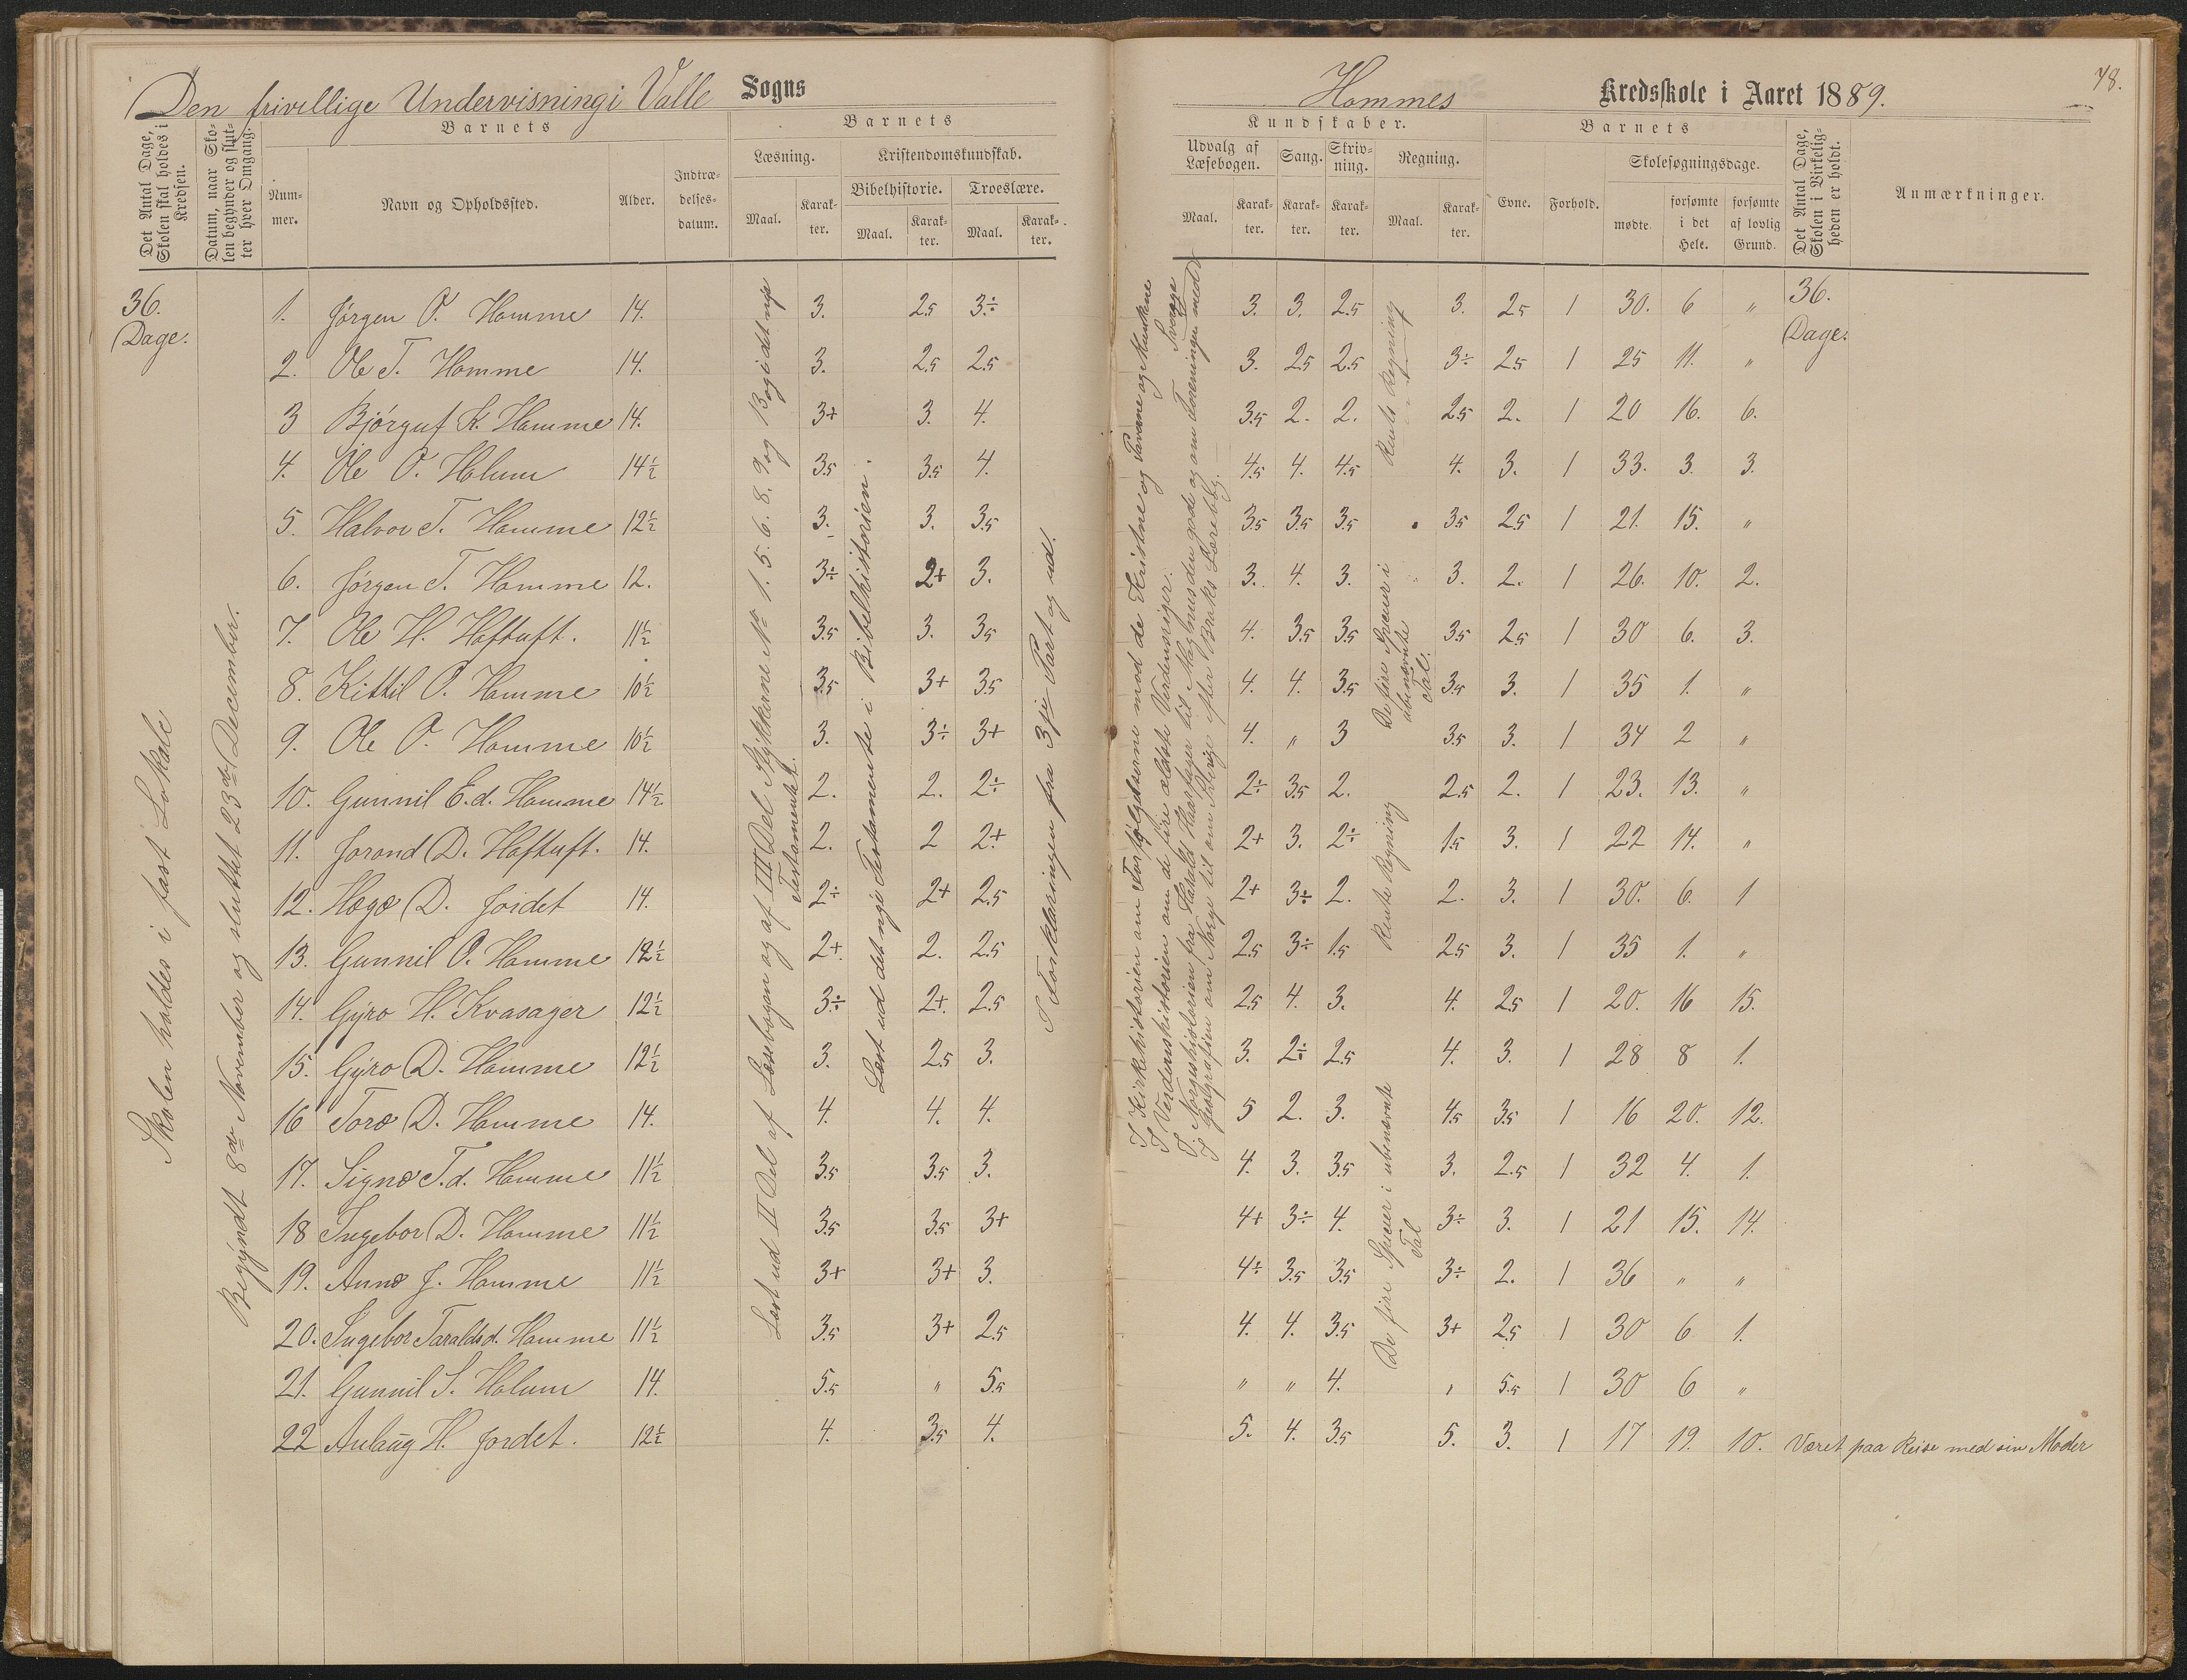 Den frivillige Undervisning i Valle Sogns
Det Antal Dage, Skolen skal holdes i Kredsen.
Datum, naar Skolen begynder og slutter hver Omgang.
Barnets
Nummer.
Navn og Opholdssted.
Alder.
Indtrædelsesdatum.
Barnets
Læsning.
Maal.
Karakter.
Kristendomskundskab.
Bibelhistorie.
Maal.
Karakter.
Troeslære.
Maal.
Karakter.
36. Dage.
Skolen holdes i fast Lokale
Begyndt 8de November og sluttet 23de December.
1. Jørgen O. Homme 14. 3. 2.5 3÷
2. Ole T. Homme 14. 3. 2.5 2.5
3 Bjørguf K. Homme 14. 3+ 3. 4.
4. Ole O. Holum 14½ 3.5 3.5 4.
5. Halvor T. Homme 12½ 3. 3. 3.5
6. Jørgen T. Homme 12. 3÷ 2+ 3.
7. Ole H. Haftuft. 11½ 3.5 3. 3.5
8. Kittil O. Homme 10½ 3.5 3+ 3.5
9. Ole O. Homme 10½ 3. 3÷ 3+
10. Gunnil E.d. Homme 14½ 2. 2. 2÷
11. Jorond D. Haftuft. 14. 2. 2 2+
12. Hægo D. Jordet 14. 2÷ 2+ 2.5
13. Gunnil O. Homme 12½ 2+. 2. 2.5
14. Gyro H. Kvasager 12½ 3÷ 2+. 2.5
15. Gyro D. Homme 12½ 3. 2.5 3.
16 Toro D. Homme 14. 4. 4. 4.
17. Signe T.d. Homme 11½ 3.5 3.5 3.
18 Ingebor D. Homme 11½ 3.5 3.5 3+
19. Anne J. Homme 11½ 3+ 3+ 3.
20. Ingebor Taraldsd. Homme 11½ 3.5 3+ 2.5
21. Gunnil S. Holum 14. 5.5 " 5.5
22 Anlaug H. Jordet. 12½ 4. 3.5 4.
Læst ud II Del af Læsebogen og af III Del Stykkerne No 1. 5. 6. 8. 9 og 13 og i det nye Testamentet.
Læst ud det nye Testamente i Bibelhistorien.
I Forklaringen fra 3die Part og ud.
Hommes Kredsskole i Aaret 1889.
78.
Kundskaber.
Udvalg af Læsebogen.
Maal.
Karakter.
Sang.
Karakter.
Skrivning.
Karakter.
Regning.
Maal.
Karakter.
Barnets
Evne.
Forhold.
Skolesøgningsdage.
mødte.
forsømte i det Hele.
forsømte af lovlig Grund.
Det Antal Dage, Skolen i Virkeligheden er holdt.
Anmærkninger.
I Kirkehistorien om Forfølgelserne mod de Kristne og Paverne og Munkene
I Verdenshistorien om de fire ældste Verdensriger.
I Norgeshistorien fra Haralds Haarfager til Magnus den gode og om Foreningen med Sverige
I Geografien om Norge til om Sverige efter Broks Lærebog.
3. 3. 2.5 3. 2.5 1 30. 6 " 36. Dage.
3. 2.5 2.5 3÷ 2.5 1 25 11. "
3.5 2. 2. 2.5 2. 1 20 16. 6.
4.5 4. 4.5 4. 3. 1 33. 3. 3.
3.5 3.5 3.5 3.5 2.5 1 21. 15. "
3. 4. 3. 3. 2. 1 26. 10. 2.
4. 3.5 3.5 3.5 2.5 1 30 6. 3.
4. 4. 3.5 3.5 3. 1 35 1. "
4. " 3 3.5 3. 1 34 2 "
2÷ 3.5 2. 2.5 2. 1 23. 13. "
2+ 3. 2÷ 1.5 3. 1 22 14. "
2+ 3÷ 2. 2. 3. 1 30. 6. 1
2.5 3÷ 1.5 2.5 3. 1 35 1. "
2.5 4. 3. 4. 2.5 1 20. 16 15.
3. 2÷ 2.5 4. 3. 1 28 8 1.
5 2. 3. 4.5 3.5 1 16 20. 12.
4. 3. 3.5 3. 2.5 1 32 4. 1.
4+ 3÷ 4. 3÷ 3. 1 21 15. 14.
4÷ 3.5 3.5 3÷ 2. 1 36 " "
4. 4. 3.5 3+ 2.5 1 30 6 1.
" " 4. " 5.5 1 30 6 "
5. 4. 3.5 5. 3. 1 17 19. 10. Været paa Reise med sin Moder
Rents Regning
De fire Specier i ubenævnte Tal.
Rents Regning
De fire Specier i ubenævnte Tal